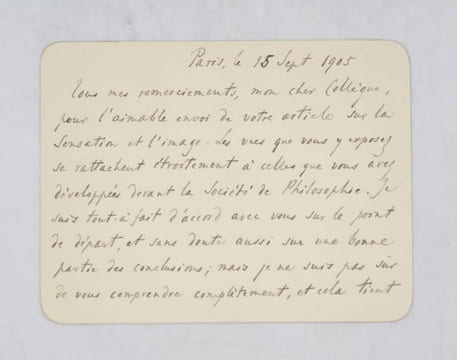 Paris, le 15 Sept 1905
Tous mes remerciements, mon cher Collègue,
pour l'aimable envoi de votre article sur la
Sensation et l'image. Les vues que vous y exposez
se rattachent étroitement à celles que vous avez
développées devant la Société de Philosophie. Je
suis tout-à-fait d'accord avec vous sur le point
de départ, et sans doute aussi sur une bonne
partie des conclusions; mais je ne suis pas sûr
de vous comprendre complètement, et cela tient